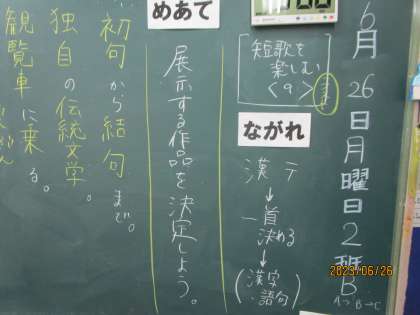 6月26日月曜日2班B
A→B→C
短歌を
楽しむ
<9>
ながれ
漢テ
↓
一首
決める
↓
(漢字
・語句)
めあて
展示する作品を決定しよう。
初句から結句まで。
独自の伝統文学。
観覧車に乗る。
2023/06/26